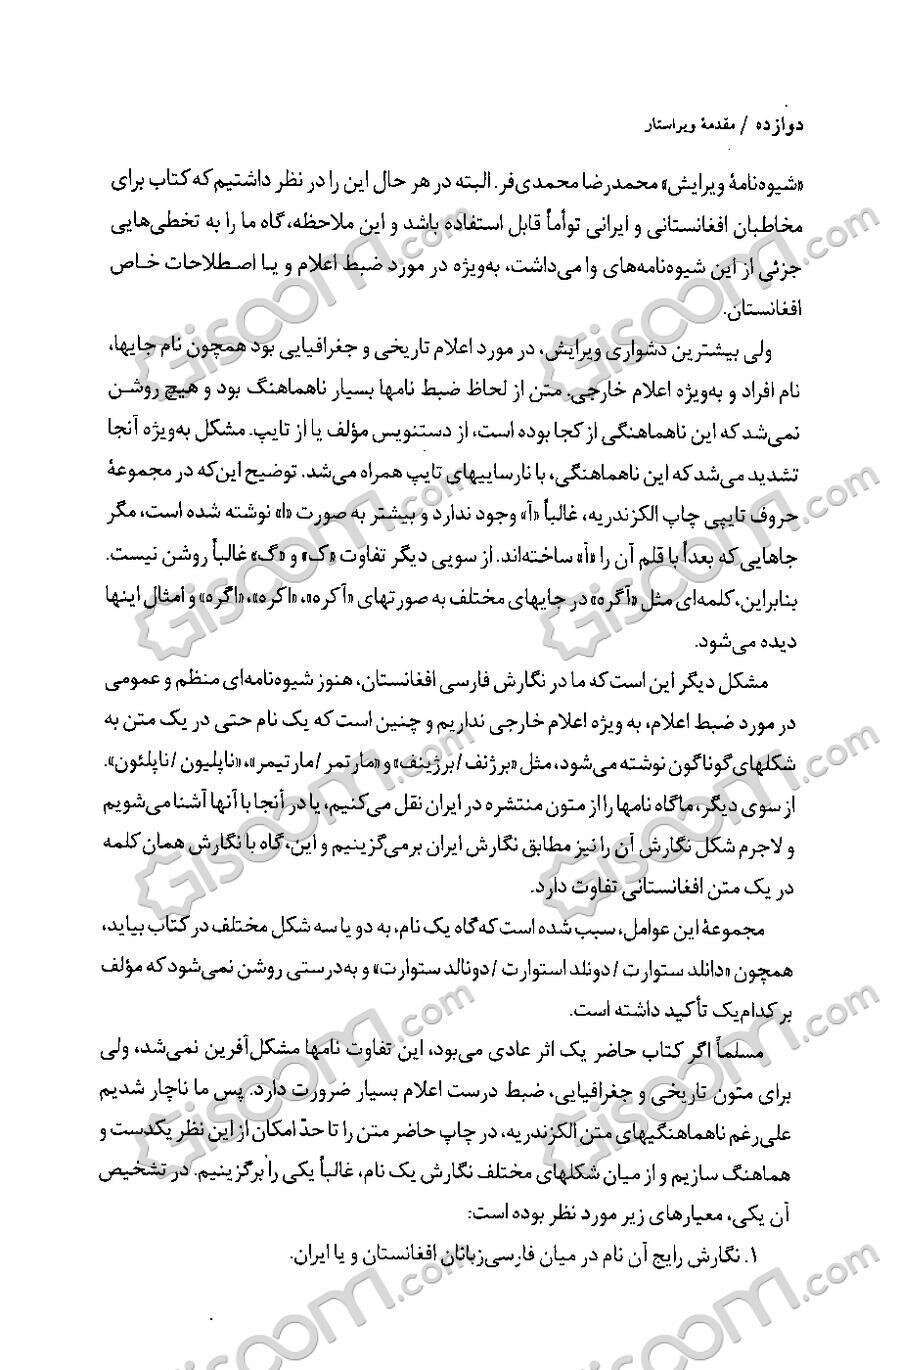 دوازده / مقدمهٔ ویراستار
«شیوه‌نامهٔ ویرایش» محمدرضا محمدی‌فر. البته در هر حال این را در نظر داشتیم که کتاب برای
مخاطبان افغانستانی و ایرانی توأماً قابل استفاده باشد و این ملاحظه، گاه ما را به تخطی‌هایی
جزئی از این شیوه‌نامه‌های وا می‌داشت، به‌ویژه در مورد ضبط اعلام و یا اصطلاحات خاص
افغانستان.
ولی بیشترین دشواری ویرایش، در مورد اعلام تاریخی و جغرافیایی بود همچون نام جایها،
نام افراد و به‌ویژه اعلام خارجی. متن از لحاظ ضبط نامها بسیار ناهماهنگ بود و هیچ روشن
نمی‌شد که این ناهماهنگی از کجا بوده است، از دستنویس مؤلف یا از تایپ. مشکل به‌ویژه آنجا
تشدید می‌شد که این ناهماهنگی، با نارساییهای تایپ همراه می‌شد. توضیح این‌که در مجموعهٔ
حروف تایپی چاپ الکزندریه، غالباً «آ» وجود ندارد و بیشتر به صورت «ا» نوشته شده است، مگر
جاهایی که بعداً با قلم آن را «آ» ساخته‌اند. از سویی دیگر تفاوت «ک» و «گ» غالباً روشن نیست.
بنابراین، کلمه‌ای مثل «آگره» در جایهای مختلف به صورتهای «آکره»، «اکره»، «اگره» و امثال اینها
دیده می‌شود.
مشکل دیگر این است که ما در نگارش فارسی افغانستان، هنوز شیوه‌نامه‌ای منظم و عمومی
در مورد ضبط اعلام، به ویژه اعلام خارجی نداریم و چنین است که یک نام حتی در یک متن به
شکلهای گوناگون نوشته می‌شود، مثل «برژنف / برژینف» و «مارتمر / مارتیمر»، «ناپلیون / ناپلئون».
از سوی دیگر، ما گاه نامها را از متون منتشره در ایران نقل می‌کنیم، یا در آنجا با آنها آشنا می‌شویم
و لاجرم شکل نگارش آن را نیز مطابق نگارش ایران برمی‌گزینیم و این، گاه با نگارش همان کلمه
در یک متن افغانستانی تفاوت دارد.
مجموعهٔ این عوامل، سبب شده است که گاه یک نام، به دو یا سه شکل مختلف در کتاب بیاید،
همچون «دانلد ستوارت / دونلد استوارت / دونالد ستوارت» و به‌درستی روشن نمی‌شود که مؤلف
بر کدام‌یک تأکید داشته است.
مسلماً اگر کتاب حاضر یک اثر عادی می‌بود، این تفاوت نامها مشکل‌آفرین نمی‌شد، ولی
برای متون تاریخی و جغرافیایی، ضبط درست اعلام بسیار ضرورت دارد. پس ما ناچار شدیم
علی‌رغم ناهماهنگیهای متن الکزندریه، در چاپ حاضر متن را تا حدّ امکان از این نظر یکدست و
هماهنگ سازیم و از میان شکلهای مختلف نگارش یک نام، غالباً یکی را برگزینیم. در تشخیص
آن یکی، معیارهای زیر مورد نظر بوده است:
۱. نگارش رایج آن نام در میان فارسی‌زبانان افغانستان و یا ایران.
Giscoom.com
Giscoom.com
Giscoom.com
Giscoom.com
Giscoom.com
Giscoom.com
Giscoom.com
Giscoom.com
Giscoom.com
Giscoom.com